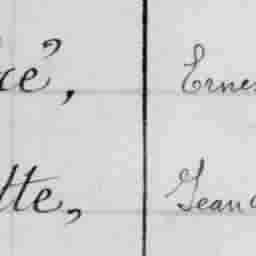 cé, Ernes
tte, Jean